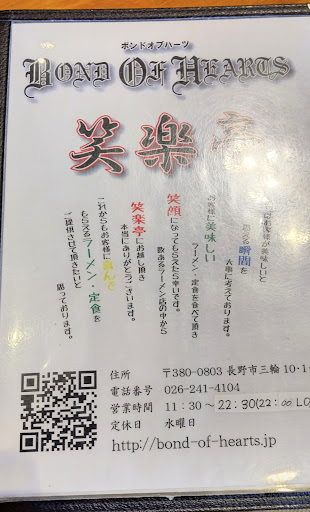 ボンドオブハーツ
BOND OF HEARTS
笑楽亭
お客様が美味しいと
思える瞬間を
大事に考えております。
お客様に美味しい
ラーメン・定食を食べて頂き
笑顔になってもらえたら幸いです。
数あるラーメン店の中から
笑楽亭にお越し頂き
本当にありがとうございます。
これからもお客様に喜んで
もらえるラーメン・定食を
ご提供させて頂きたいと
思っております。
住所 〒380-0803 長野市三輪 10-1-
電話番号 026-241-4104
営業時間 11:30~22:30(22:00 LO
定休日 水曜日
http://bond-of-hearts.jp